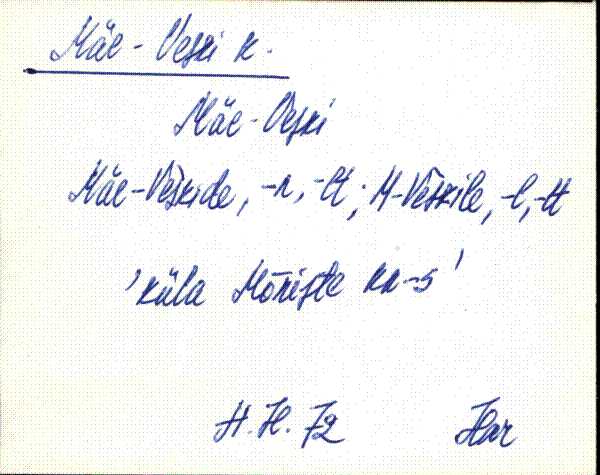 Mäe-Veski k.
Mäe-Veski
Mäe-Veskide, -n, -st; M-Veskile, -l, -lt
'küla Mõniste kn-s'
H. H. 72 Har